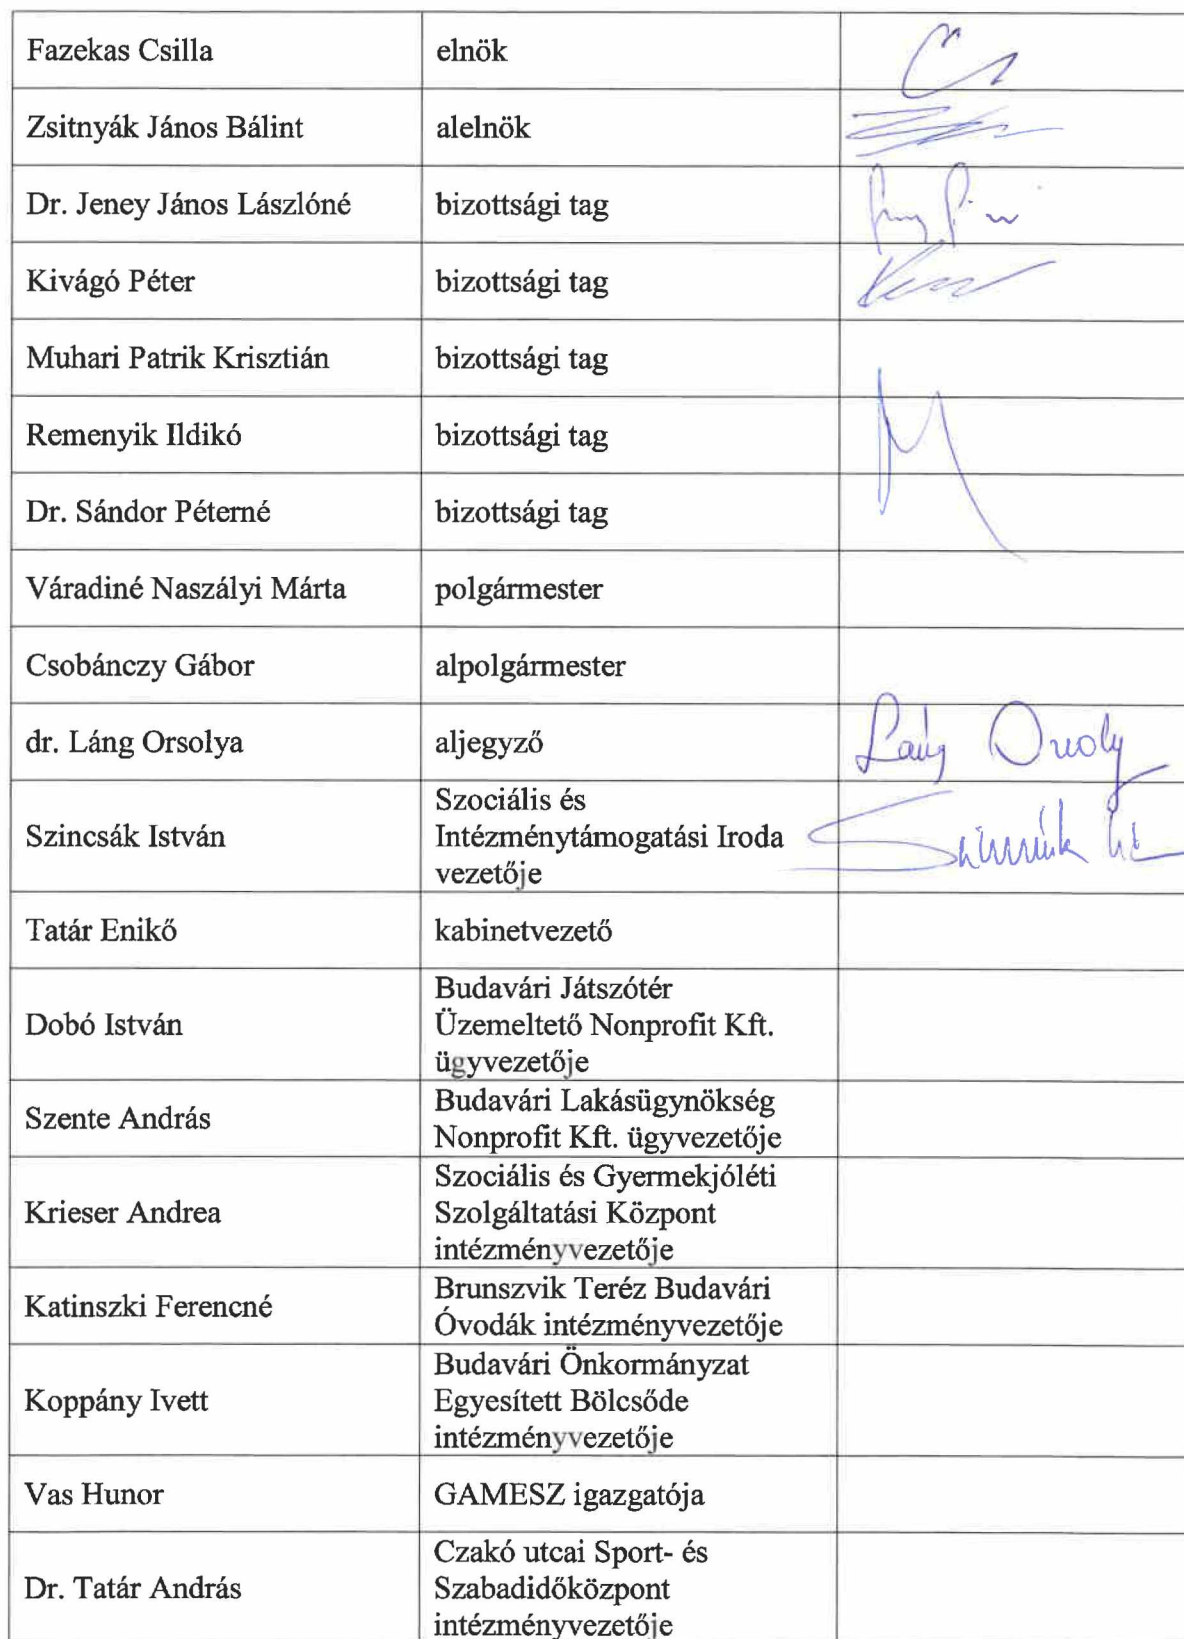 Fazekas Csilla elnök
Zsitnyák János Bálint alelnök
Dr. Jeney János Lászlóné bizottsági tag
Kivágó Péter bizottsági tag
Muhari Patrik Krisztián bizottsági tag
Remenyik Ildikó bizottsági tag
Dr. Sándor Péterné bizottsági tag
Váradiné Naszályi Márta polgármester
Csobánczy Gábor alpolgármester
dr. Láng Orsolya aljegyző Láng Orsoly
Szincsák István
Szociális és
Intézménytámogatási Iroda
vezetője
Tatár Enikő kabinetvezető
Dobó István
Budavári Játszótér
Üzemeltető Nonprofit Kft.
ügyvezetője
Szente András
Budavári Lakásügynökség
Nonprofit Kft. ügyvezetője
Krieser Andrea
Szociális és Gyermekjóléti
Szolgáltatási Központ
intézményvezetője
Katinszki Ferencné
Brunszvik Teréz Budavári
Óvodák intézményvezetője
Koppány Ivett
Budavári Önkormányzat
Egyesített Bölcsőde
intézményvezetője
Vas Hunor GAMESZ igazgatója
Dr. Tatár András
Czakó utcai Sport- és
Szabadidőközpont
intézményvezetője